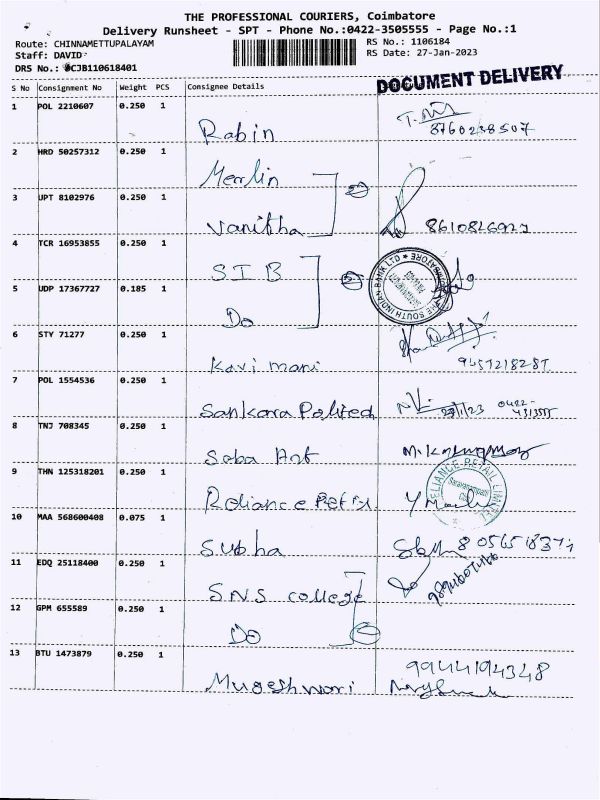 THE PROFESSIONAL COURIERS, Coimbatore
Delivery Runsheet - SPT - Phone No.:0422-3505555 - Page No.:1
Route: CHINNAMETTUPALAYAM
RS No.: 1106184
Staff: DAVID
RS Date: 27-Jan-2023
DRS No.: CJB110618401
DOCUMENT DELIVERY
S No Consignment No Weight PCS Consignee Details
1 POL 2210607 0.250 1
Rabin
2 HRD 50257312 0.250 1
Merlin
3 UPT 8102976 0.250 1
Vanitha
4 TCR 16953855 0.250 1
SIB
THE SOUTH INDIAN BANK LTD COIMBATORE
5 UDP 17367727 0.185 1
Do
6 STY 71277 0.250 1
Kavi mani
7 POL 1554536 0.250 1
Sankara Polited
8 TNJ 708345 0.250 1
Soba Art
9 THN 125318201 0.250 1
Reliance Retil
RELIANCE RETAIL LIMITED
10 MAA 568600408 0.075 1
Subha
11 EDQ 25118400 0.250 1
SNS college
12 GPM 655589 0.250 1
Do
13 BTU 1473879 0.250 1
9944194348
Mugeshwari